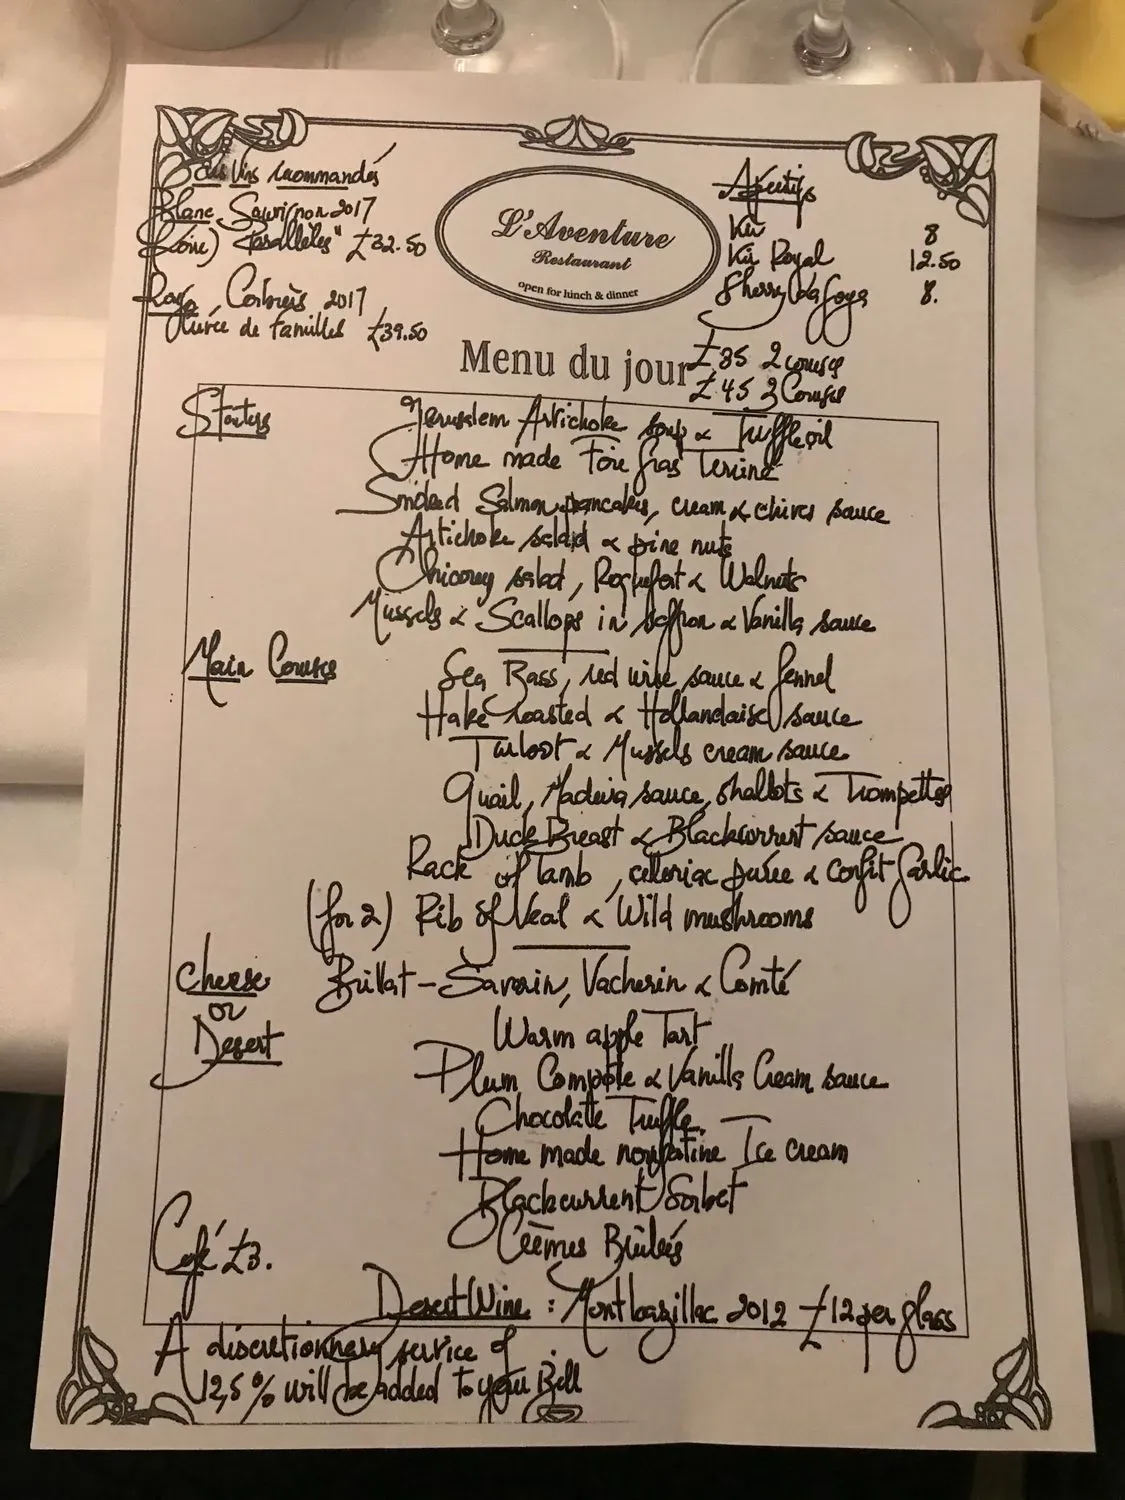 Les Vins recommandés
Blanc Sauvignon 2017
(Loire) "Parallèles" £32.50
Rouge, Corbières 2017
Cuvée de familles £39.50
L'Aventure
Restaurant
open for lunch & dinner
Apéritifs
Kir 8
Kir Royal 12.50
Sherry La Goya 8.
Menu du jour
£35 2 courses
£45 3 Courses
Starters
Jerusalem Artichoke soup & Truffle oil
Home made Foie Gras Terrine
Smoked Salmon pancakes, cream & chives sauce
Artichoke salad & pine nuts
Chicorey salad, Roquefort & Walnuts
Mussels & Scallops in saffron & Vanilla sauce
Main Courses
Sea Bass, red wine sauce & fennel
Hake roasted & Hollandaise sauce
Turbot & Mussels cream sauce
Quail, Madeira sauce, shallots & Trompettes
Duck Breast & Blackcurrent sauce
Rack of lamb, celleriac purée & confit Garlic
(for 2) Rib of Veal & Wild mushrooms
Cheese
or
Desert
Brillat-Savarin, Vacherin & Comté
Warm apple Tart
Plum Compote & Vanilla Cream sauce
Chocolate Truffle
Home made nougatine Ice cream
Blackcurrent Sorbet
Crèmes Brûlées
Café £3.
Desert Wine : Montbazillac 2012 £12 per glass
A discretionnary service of
12,5% will be added to your Bill